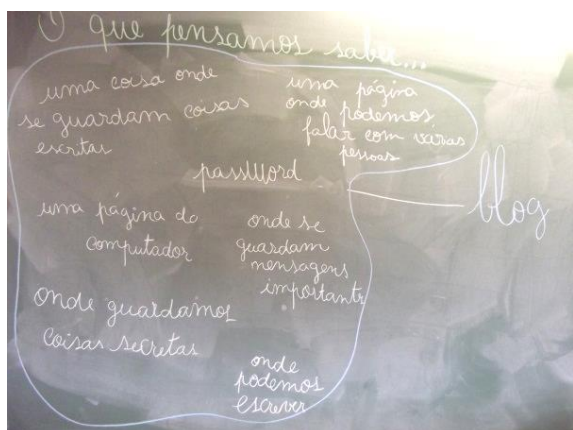 O que pensamos saber...
uma coisa onde
se guardam coisas
escritas
uma página
onde podemos
falar com varias
pessoas
passWord
blog
uma página do
computador
onde se
guardam
mensagens
importants
onde guardamos
coisas secretas
onde
podemos
escrever